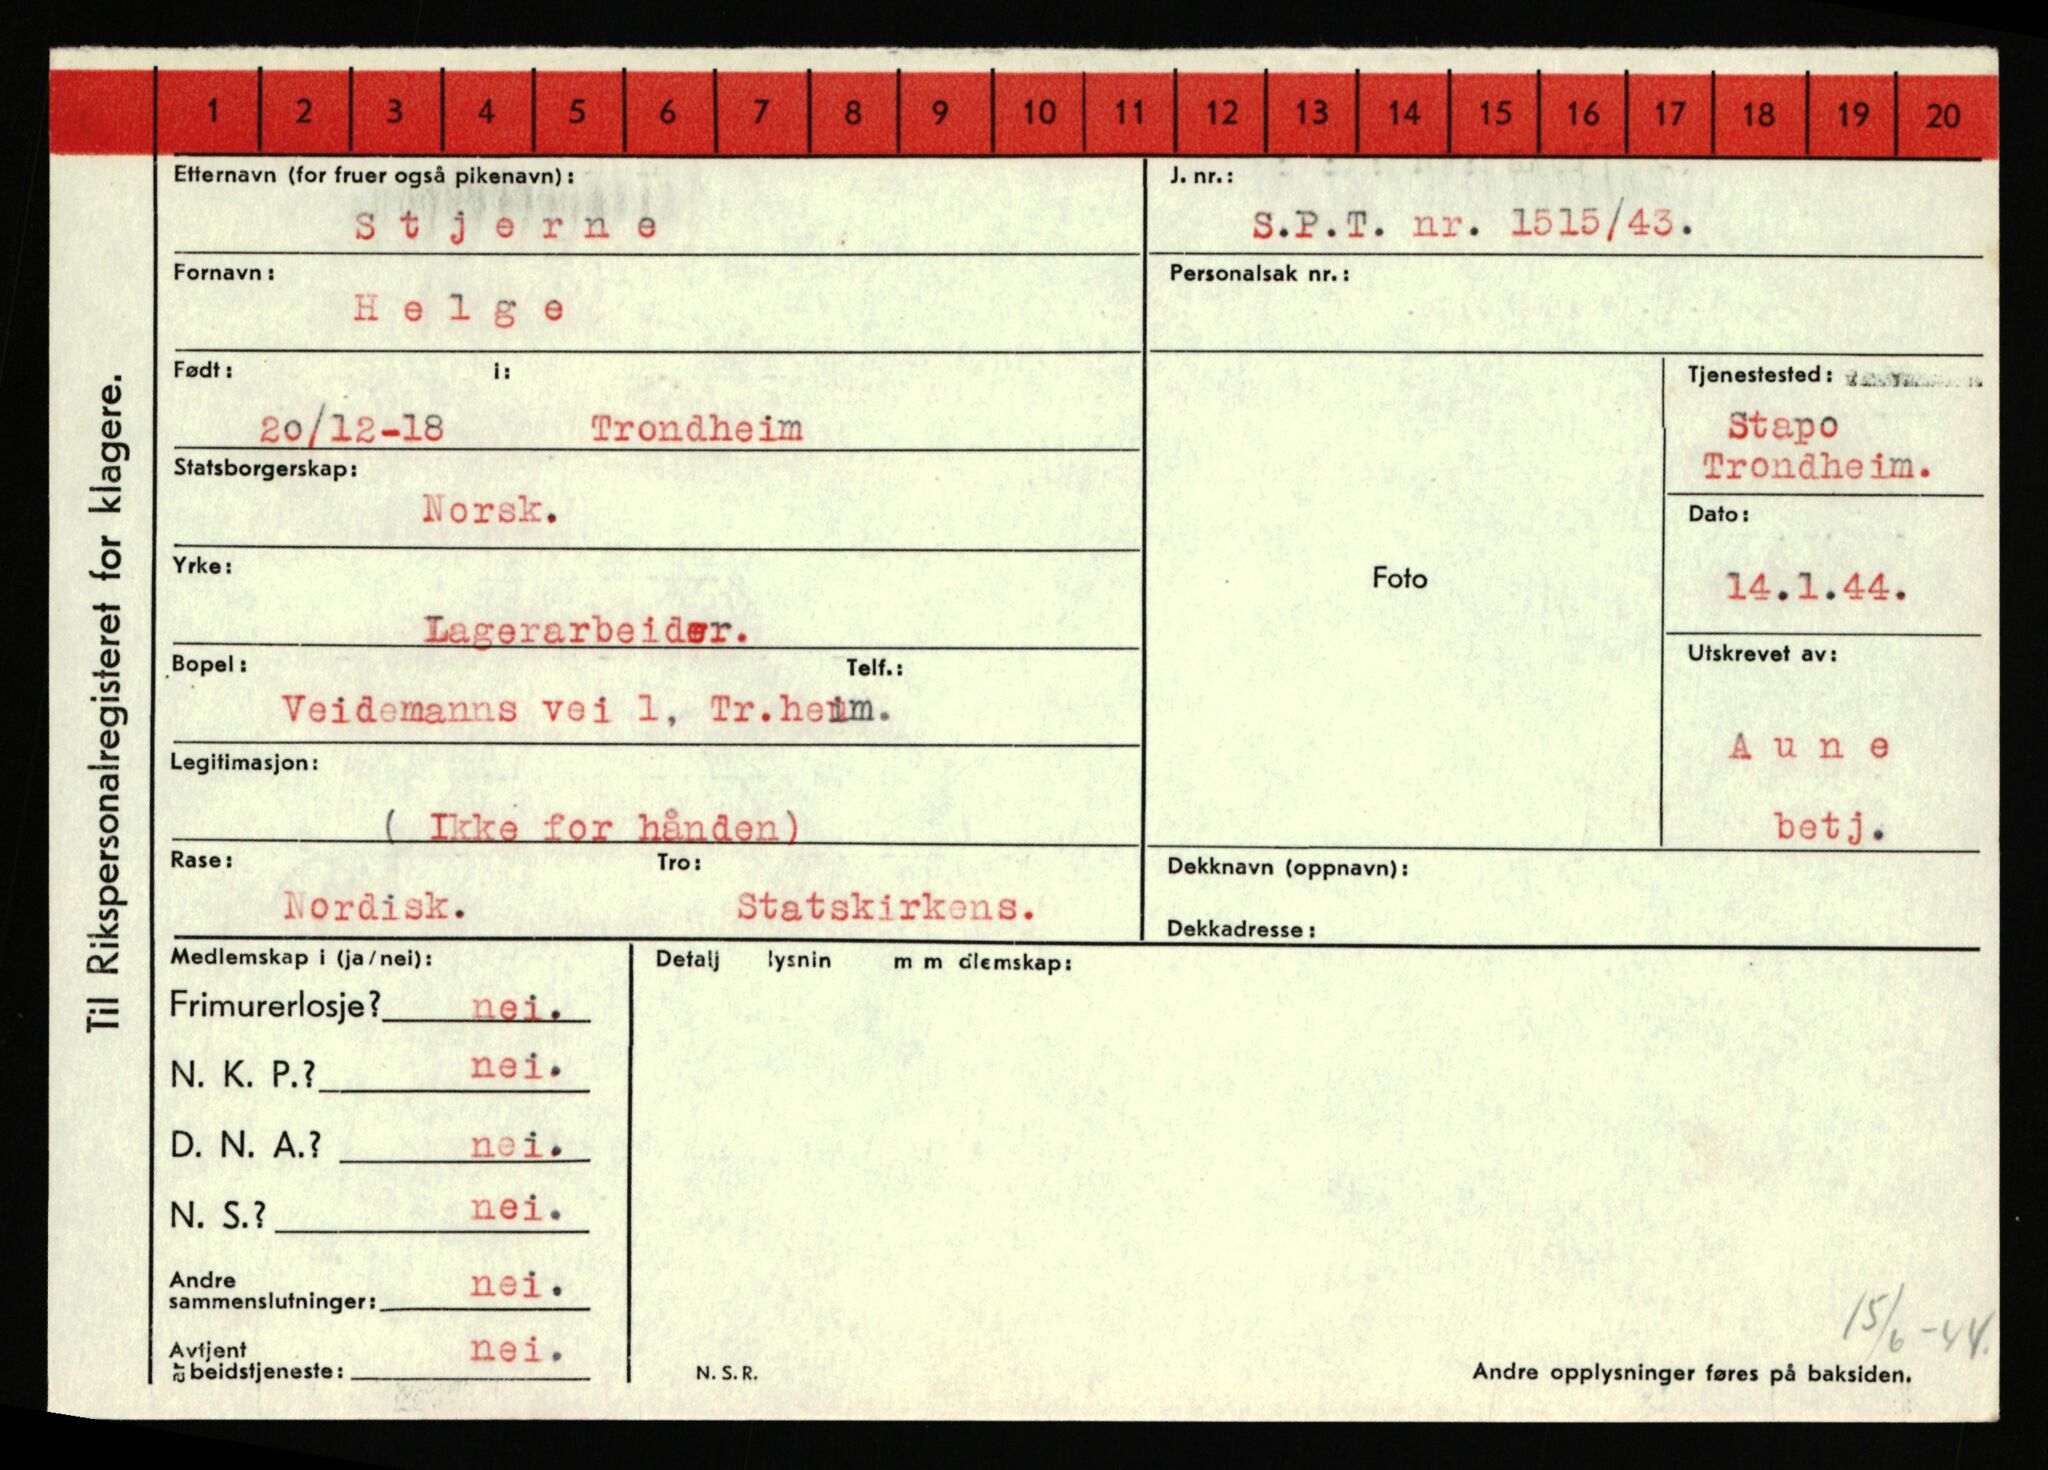 1 2 3 4 5 6 7 8 9 10 11 12 13 14 15 16 17 18 19 20
Til Rikspersonalregisteret for klagere.
Etternavn (for fruer også pikenavn):
Stjerne
J. nr.:
S.P.T. nr. 1515/43.
Fornavn:
Helge
Personalsak nr.:
Født: i:
20/12-18 Trondheim
Statsborgerskap:
Norsk.
Yrke:
Lagerarbeider.
Bopel: Telf.:
Veidemanns vei 1, Tr.heim.
Legitimasjon:
( Ikke for hånden)
Rase: Tro:
Nordisk. Statskirkens.
Foto
Tjenestested:
Stapo
Trondheim.
Dato:
14.1.44.
Utskrevet av:
Aune
betj.
Dekknavn (oppnavn):
Dekkadresse:
Medlemskap i (ja/nei):
Frimurerlosje? nei.
N. K. P.? nei.
D. N. A.? nei.
N. S.? nei.
Andre
sammenslutninger: nei.
Avtjent
arbeidstjeneste: nei.
Detalj lysnin m m dlemskap:
N. S. R.
15/6-44.
Andre opplysninger føres på baksiden.